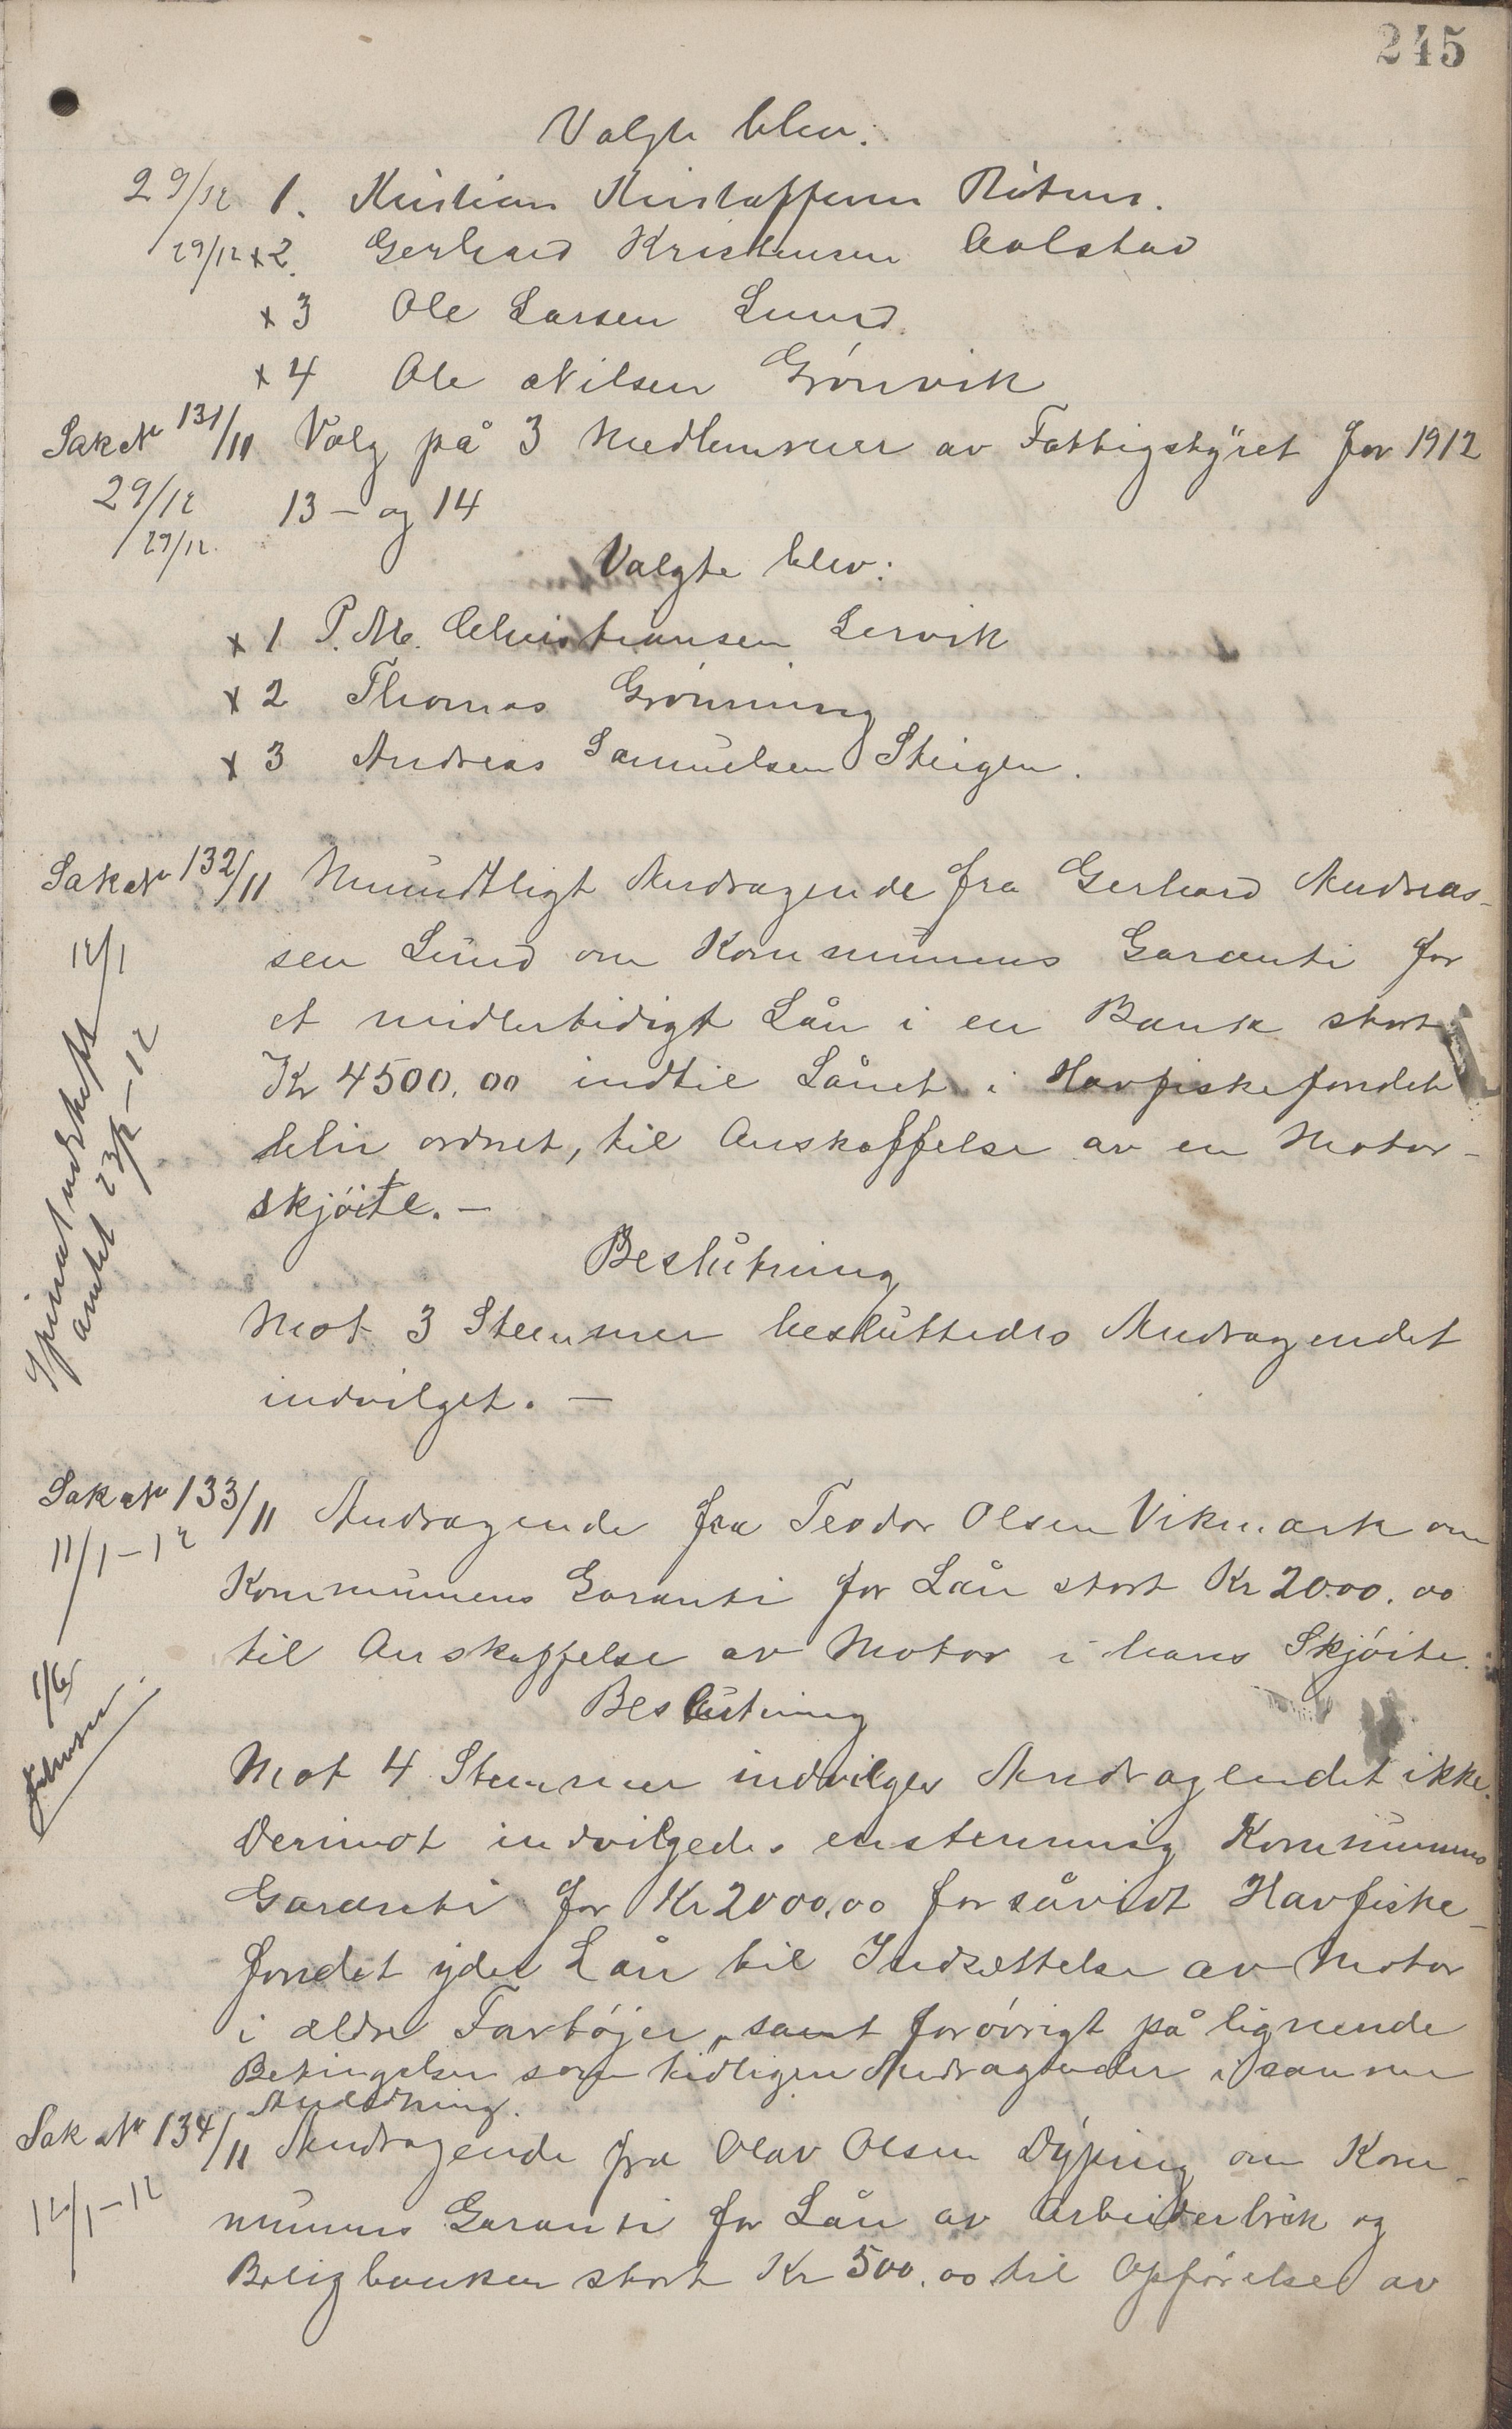 245
Valgte blev:
29/12 1. Kristian Kristoffersen Røtnes.
29/12 x 2. Gerhard Kristensen Aalstad
x 3 Ole Larsen Lund.
x 4 Ole Nilsen Grönvik
Sak No 131/11 Valg på 3 Medlemmer av Fattigstyret for 1912
29/12 13 – og 14
29/12.
Valgte blev:
x 1 P. M. Christiansen Lervik
x 2 Thomas Grönning
x 3 Andreas Samuelsen Steigen.
Sak No 132/11 Mundtligt Andragende fra Gerhard Andreas-
12/1 sen Lund om Kommunens Garanti for
et midlertidigt Lån i en Bank stort
Kr 4500.00 indtil Lånet i Havfiskefondet
blir ordnet, til Anskaffelse av en Motor-
skjöite. –
Gjenat utskrift
amtet 23/2–12
Beslutning
Mot 3 Stemmer besluttedes Andragendet
indvilget. –
Sak No 133/11 Andragende fra Teodor Olsen Vikmark om
11/1–12 Kommunens Garanti for Lån stort Kr 2000.00
til Anskaffelse av Motor i hans Skjöite.
1/6
Beslutning
Mot 4 Stemmer indvilges Andragendet ikke.
Derimot indvilgedes enstemmig Kommunens
Garanti for Kr 2000,00 forsåvidt Havfiske-
fondet yder Lån til Indsættelse av Motor
i ældre Fartöjer, samt forövrigt på lignende
Betingelser som tidligere Andragender i samme
Anledning.
Sak No 134/11 Andragende fra Olav Olsen Dyping om Kom-
12/1–12 munens Garanti for Lån av Arbeiderbruk og
Boligbanken stort Kr 500.00 til Opförelse av